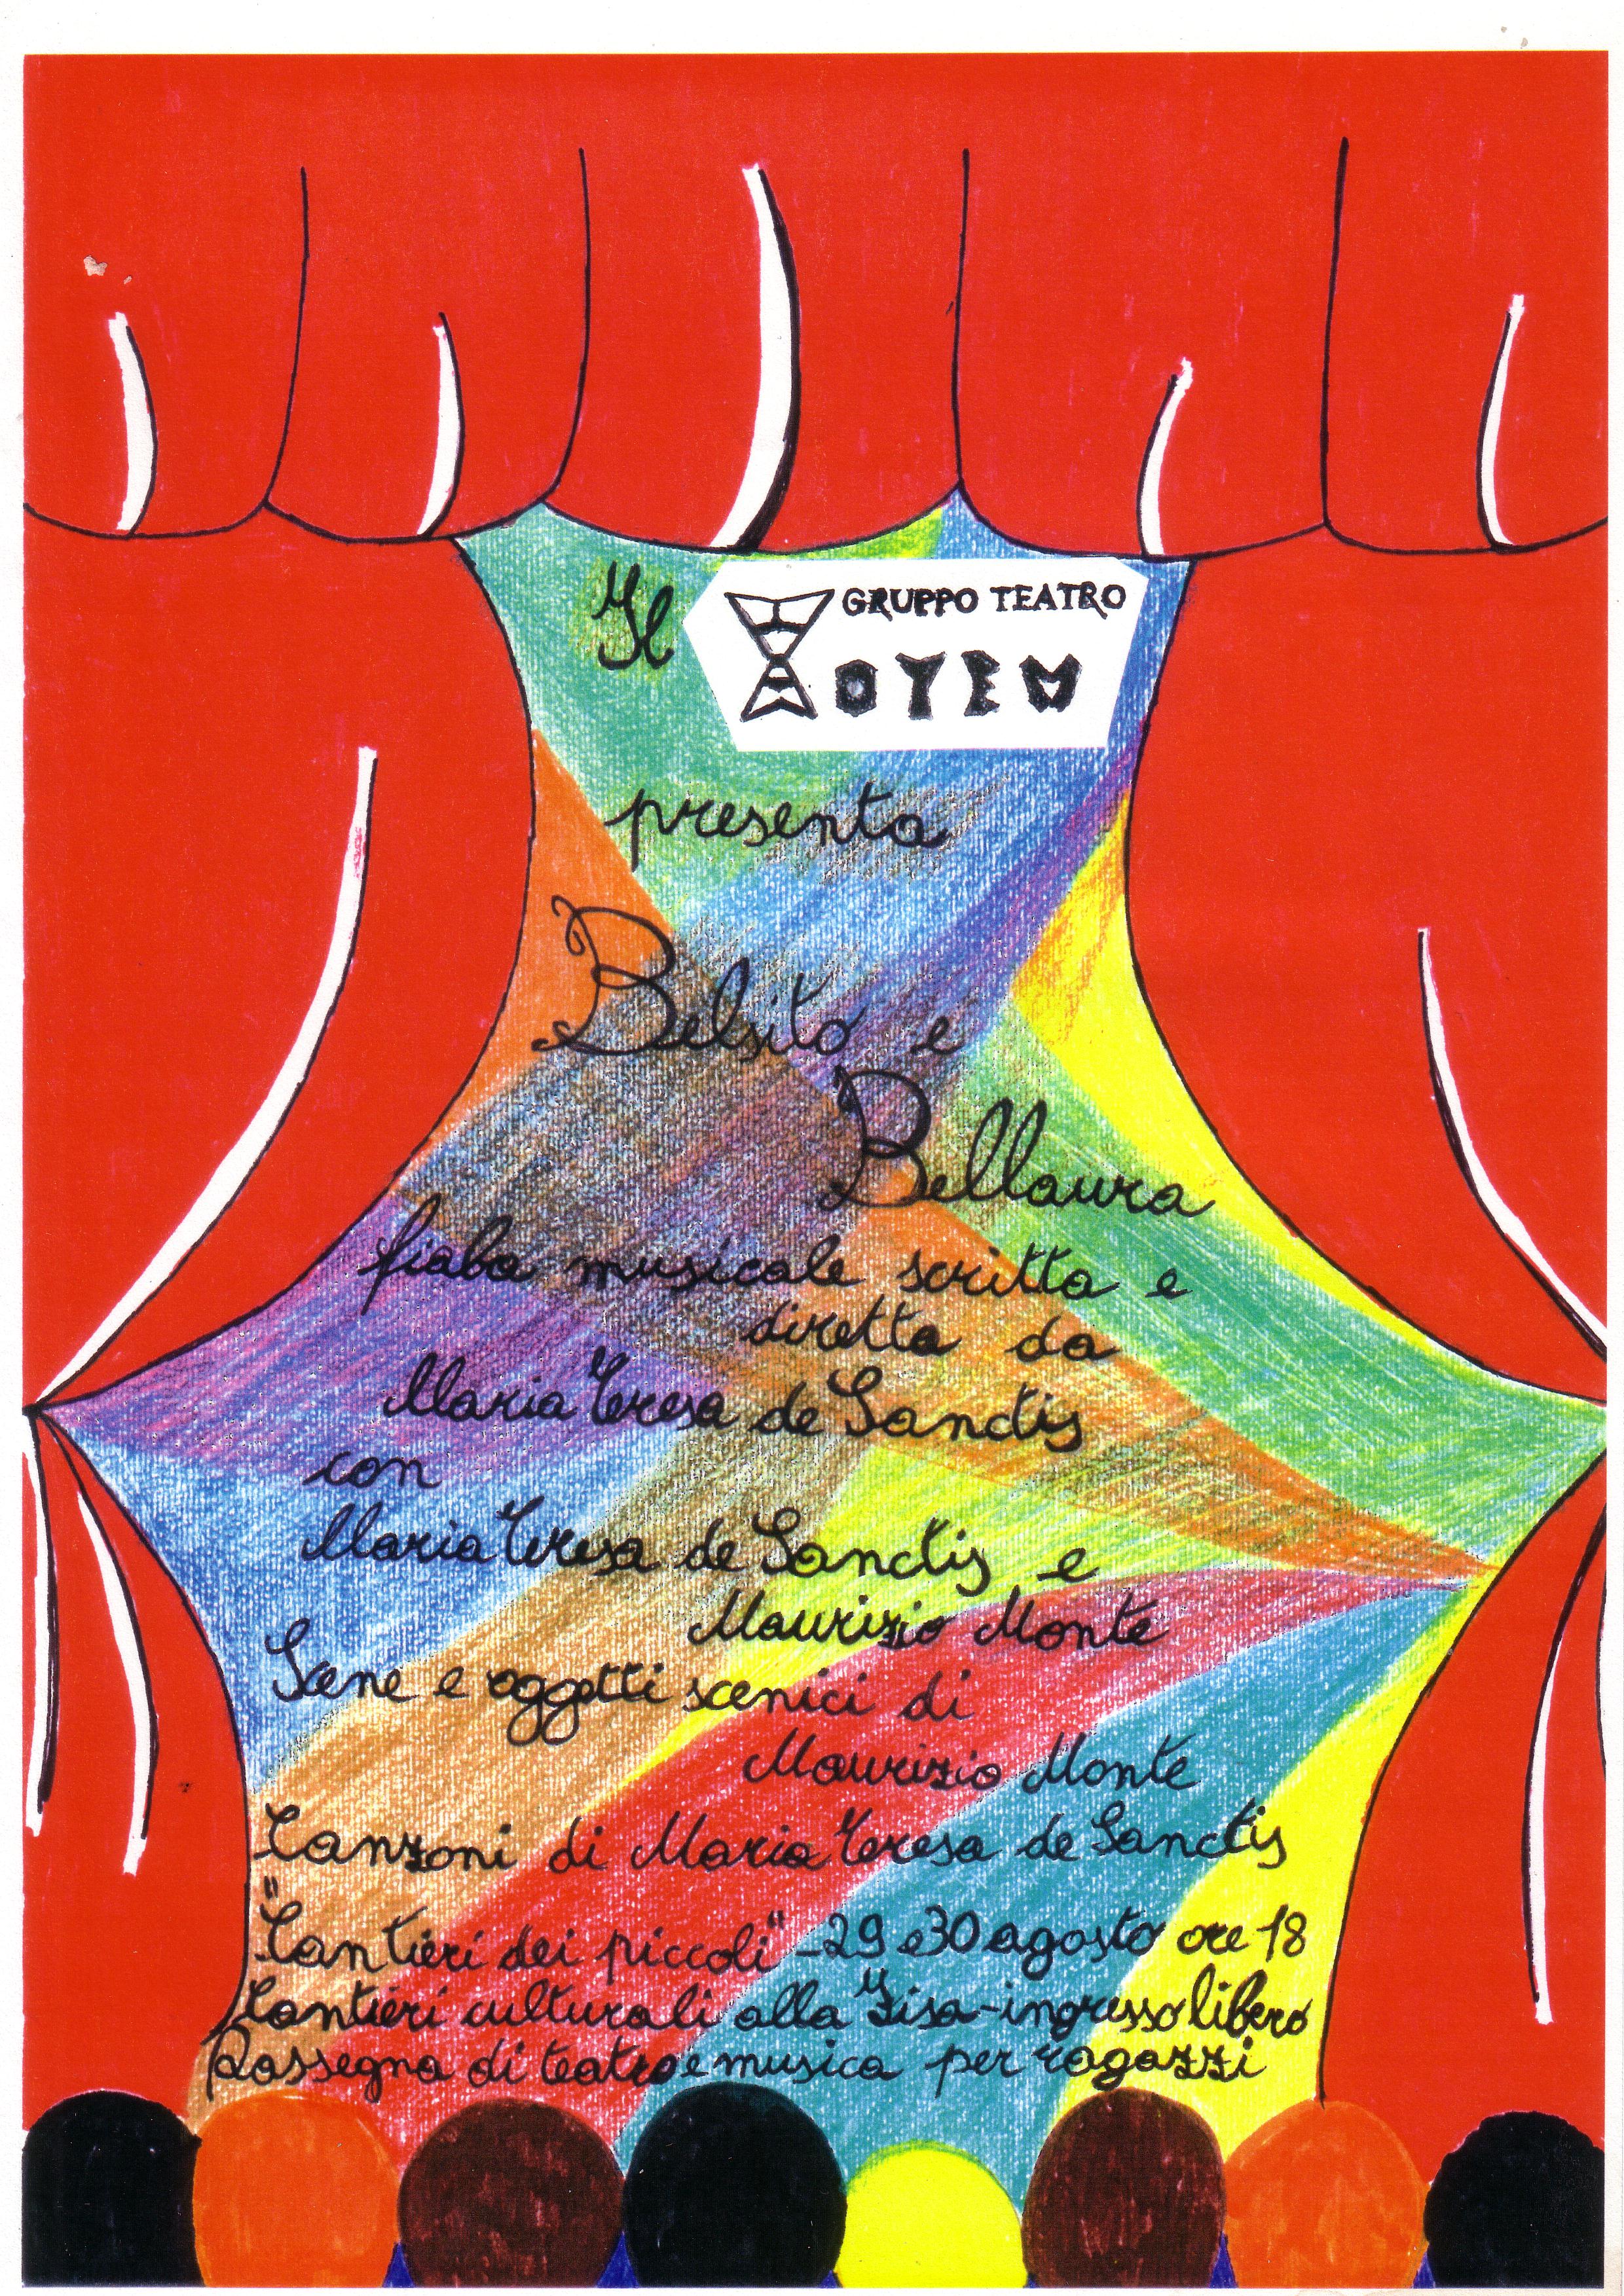 Il GRUPPO TEATRO
TOTEM
presenta
Belsito e
Bellaura
fiaba musicale scritta e
diretta da
Maria Teresa de Sanctis
con
Maria Teresa de Sanctis e
Maurizio Monte
Scene e oggetti scenici di
Maurizio Monte
Canzoni di Maria Teresa de Sanctis
"Cantieri dei piccoli" - 29 e 30 agosto ore 18
Cantieri culturali alla Zisa - ingresso libero
Rassegna di teatro e musica per ragazzi